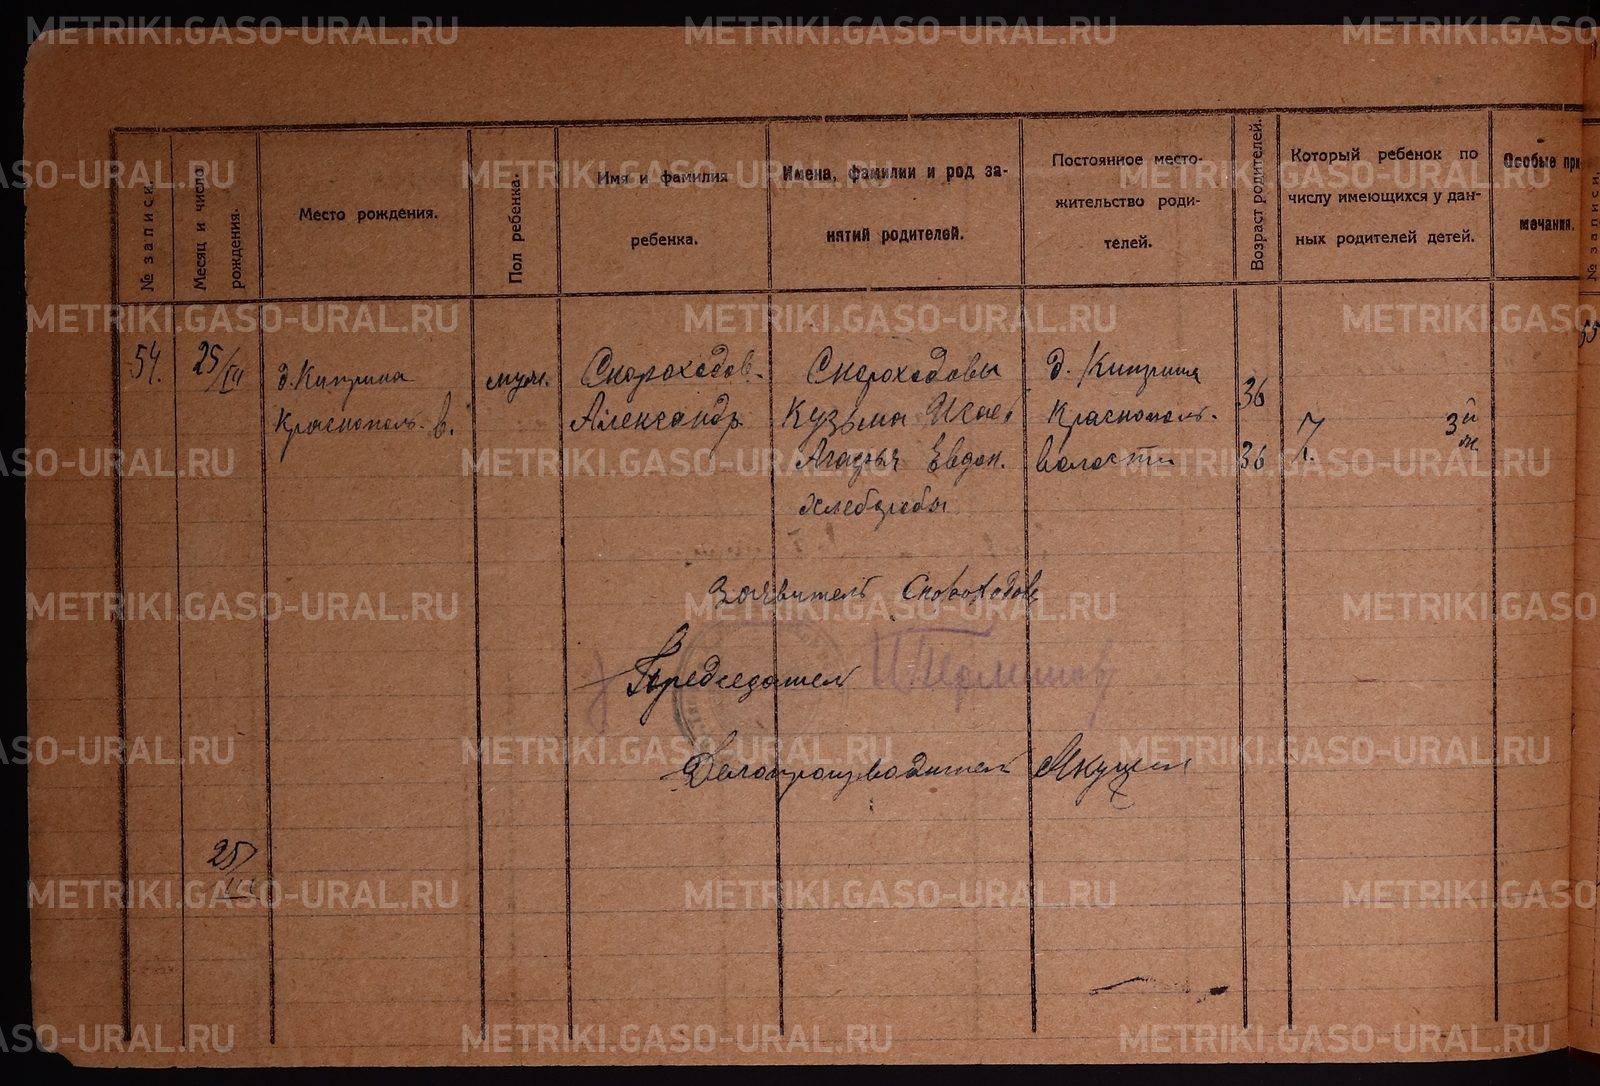 № записи.
Месяц и число рождения.
Место рождения.
Пол ребенка.
Имя и фамилия
ребенка.
Имена, фамилии и род за-
нятий родителей.
Постоянное место-
жительство роди-
телей.
Возраст родителей.
Который ребенок по
числу имеющихся у дан-
ных родителей детей.
Особые при-
мечания.
№ записи.
54.
25/III
д. Киприна
Краснополь. в.
муж.
Скороходов
Александр
Скороходовы
Кузьма Исаев
Агафья Евдок.
хлеборобы
д. Киприна
Краснополь.
волости
36
36
7.
3й
м.
55
Заявитель Скороходов
Председател
Делопроизводител
25/III
METRIKI.GASO-URAL.RU